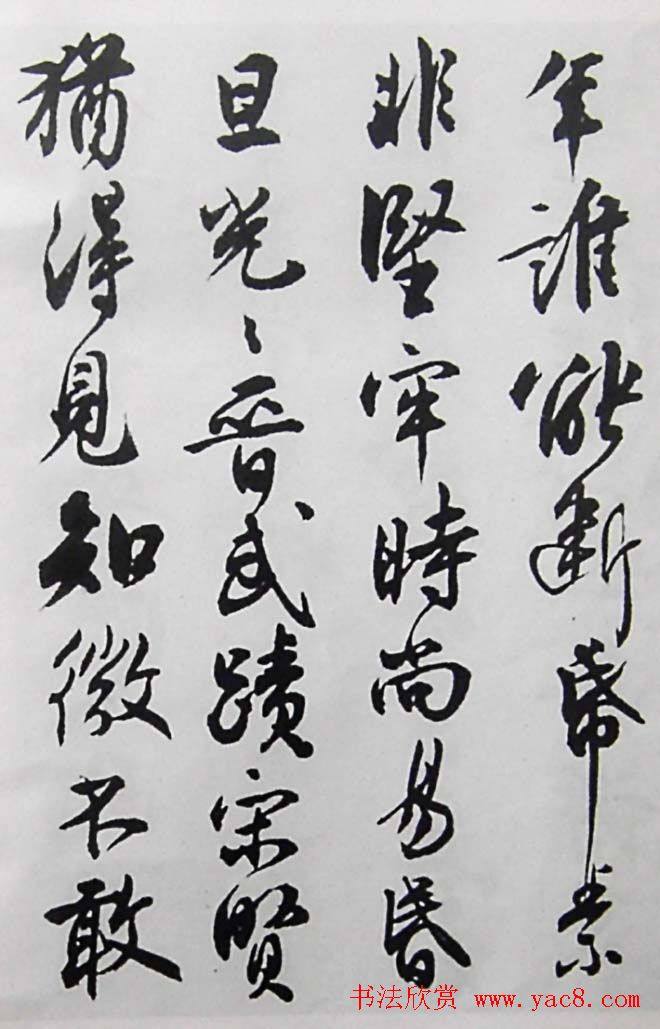 年誰能斷帋素
非堅牢時尚易昏
旦光〻晉武蹟宋賢
猶得見知微不敢
书法欣赏 www.yac8.com